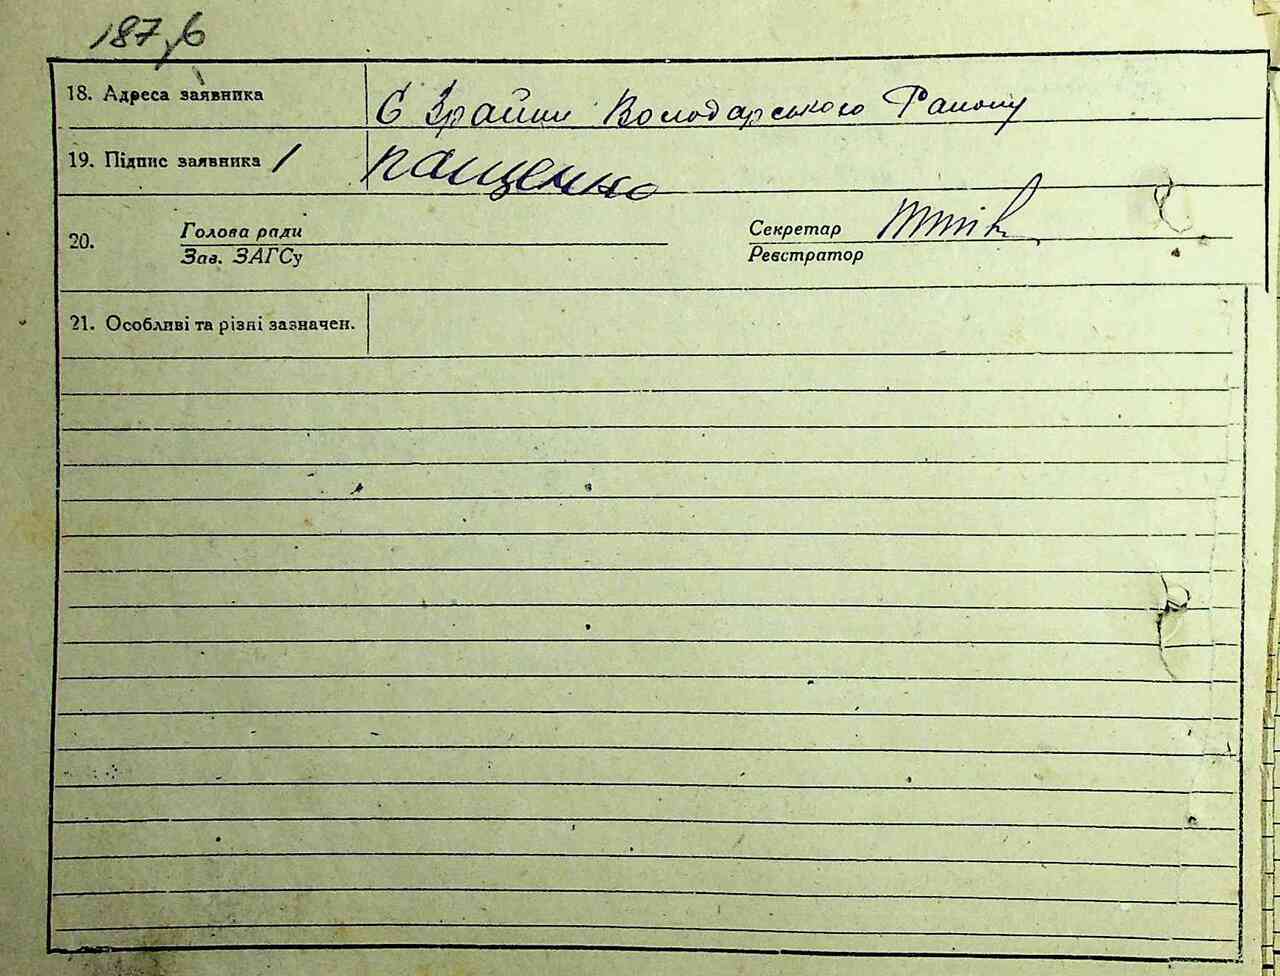 187
18. Адреса заявника С Зрайки Володарського Району
19. Підпис заявника Пащенко
20. Голова ради Секретар
Зав. ЗАГСу Реєстратор
21. Особливі та різні зазначен.